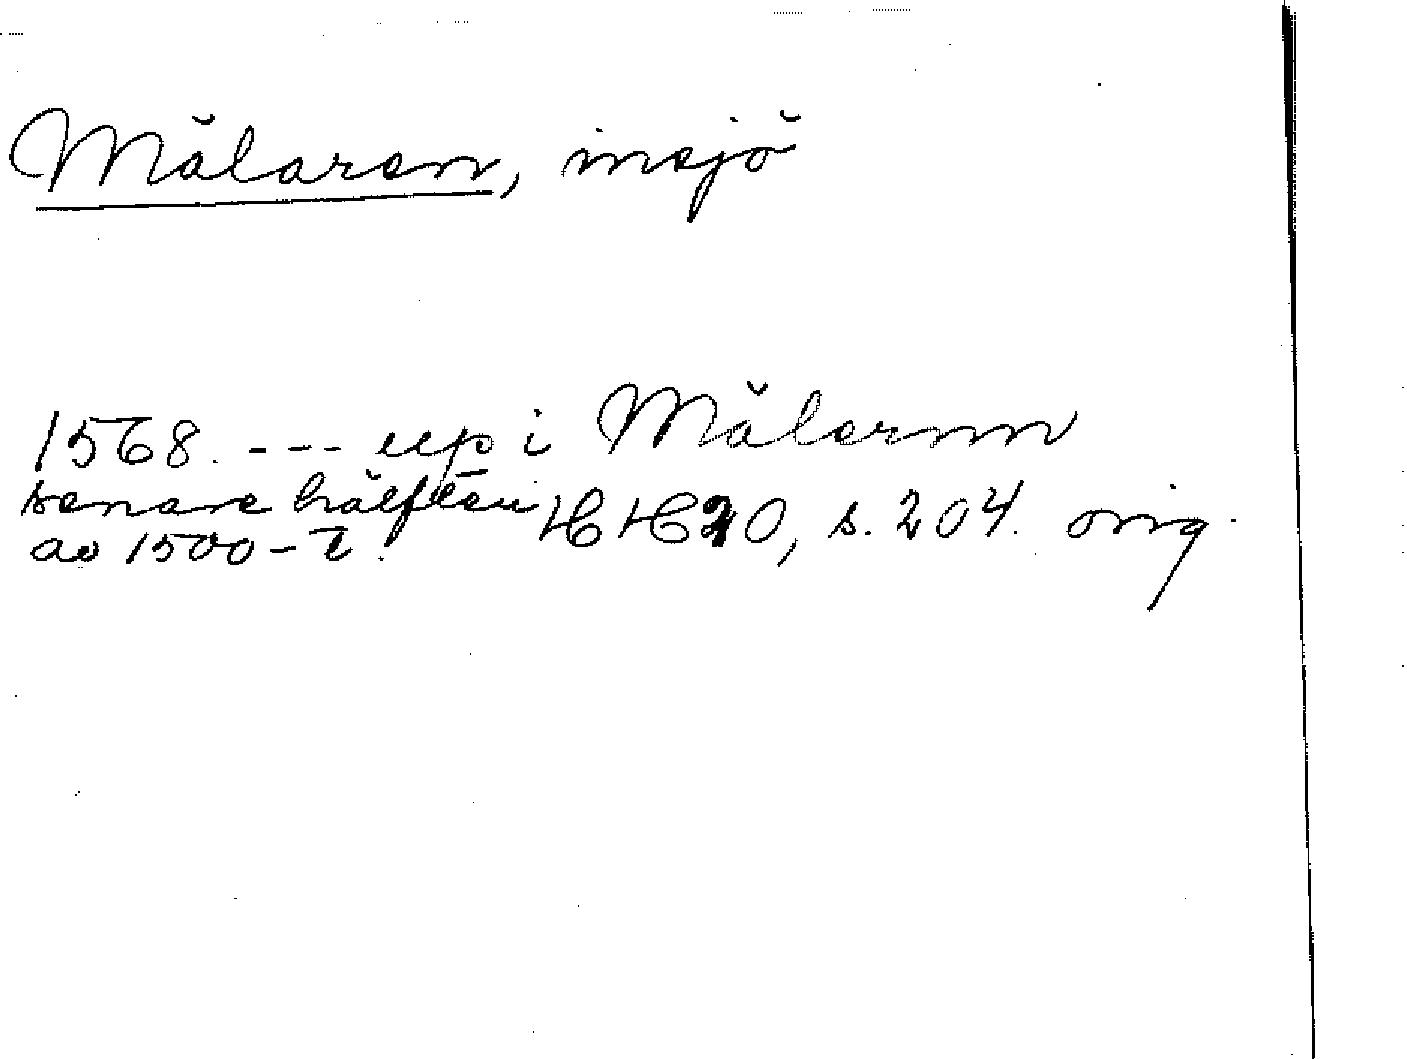 Mälaren, insjö
1568. --- up i Mälernn
senare hälften HH 20, s. 204. orig.
av 1500-t.